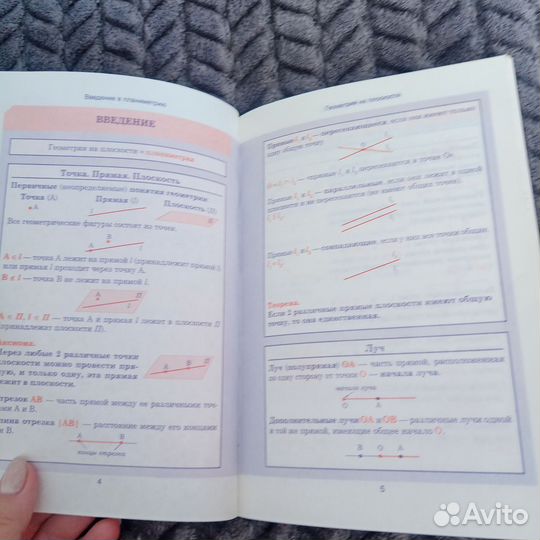 Введение в планиметрию
ВВЕДЕНИЕ
Геометрия на плоскости = планиметрия
Точка. Прямая. Плоскость
Первичные (неопределяемые) понятия геометрии
Точка (A) Прямая (l) Плоскость (П)
A l П
Все геометрические фигуры состоят из точек.
B
A l
A ∈ l — точка A лежит на прямой l (принадлежит прямой l)
или прямая l проходит через точку A.
B ∉ l — точка B не лежит на прямой l.
A П
l
A ∈ П, l ∈ П — точка A и прямая l лежат в плоскости П
(принадлежат плоскости П).
Аксиома.
Через любые 2 различные точки
плоскости можно провести пря-
мую, и только одну, эта прямая
лежит в плоскости.
A B П
отрезок AB — часть прямой между ее различными точ-
ками A и B.
длина отрезка |AB| — расстояние между его концами
A и B.
A B
концы отрезка
4
Геометрия на плоскости
Прямые l₁ и l₂ — пересекающиеся, если они имеют только
одну общую точку.
O
— l₁ и l₂ пересекаются в точке O.
Прямые l₁ и l₂ — параллельные, если они лежат в одной
плоскости и не пересекаются (не имеют общих точек).
l₁ ∥ l₂.
Прямые l₁ и l₂ — совпадающие, если у них все точки общие.
l₁ = l₂.
Теорема.
Если 2 различные прямые плоскости имеют общую
точку, то она единственная.
Луч
Луч (полупрямая) OA — часть прямой, расположенная
по одну сторону от точки O — начала луча.
начало луча
O A
Дополнительные лучи OA и OB — различные лучи одной
и той же прямой, имеющие общее начало O.
B O A
5
Avito